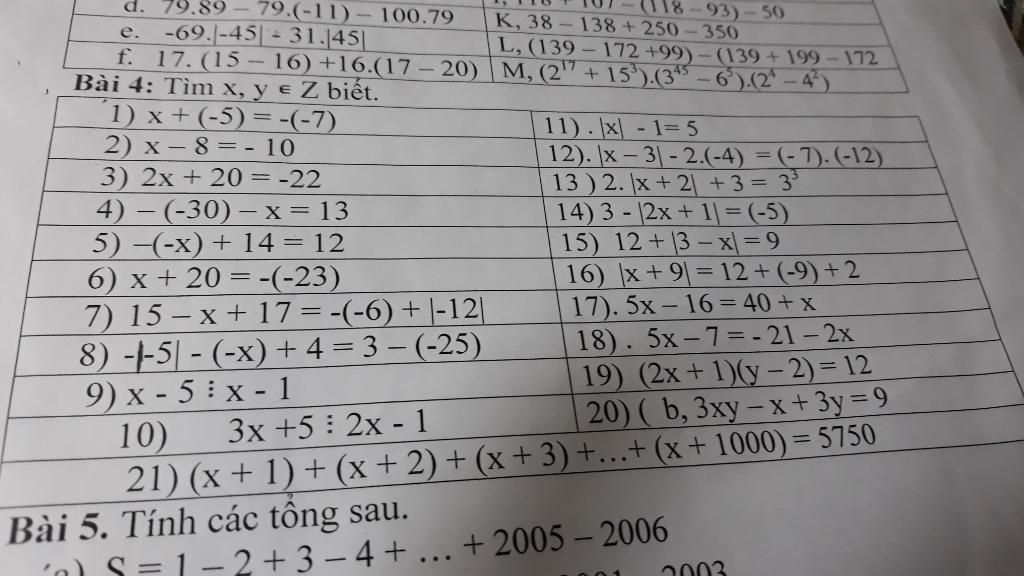 d. 79.89 – 79.(-11) – 100.79
– (118 – 93) – 50
e. -69.|-45| - 31.|45|
K, 38 – 138 + 250 – 350
f. 17. (15 – 16) +16.(17 – 20)
L, (139 – 172 +99) – (139 + 199 – 172
M, (2¹⁷ + 15³).(3⁴⁵ – 6⁵).(2⁴ – 4²)
Bài 4: Tìm x, y ∈ Z biết.
1) x + (-5) = -(-7)
2) x – 8 = - 10
3) 2x + 20 = -22
4) – (-30) – x = 13
5) –(-x) + 14 = 12
6) x + 20 = -(-23)
7) 15 – x + 17 = -(-6) + |-12|
8) -|-5| - (-x) + 4 = 3 – (-25)
9) x - 5 ⋮ x - 1
10) 3x +5 ⋮ 2x - 1
11) . |x| - 1= 5
12). |x – 3| - 2.(-4) = (- 7). (-12)
13 ) 2. |x + 2| + 3 = 3³
14) 3 - |2x + 1| = (-5)
15) 12 + |3 – x| = 9
16) |x + 9| = 12 + (-9) + 2
17). 5x – 16 = 40 + x
18) . 5x – 7 = - 21 – 2x
19) (2x + 1)(y – 2) = 12
20) ( b, 3xy – x + 3y = 9
21) (x + 1) + (x + 2) + (x + 3) +…+ (x + 1000) = 5750
Bài 5. Tính các tổng sau.
a) S = 1 – 2 + 3 – 4 + … + 2005 – 2006